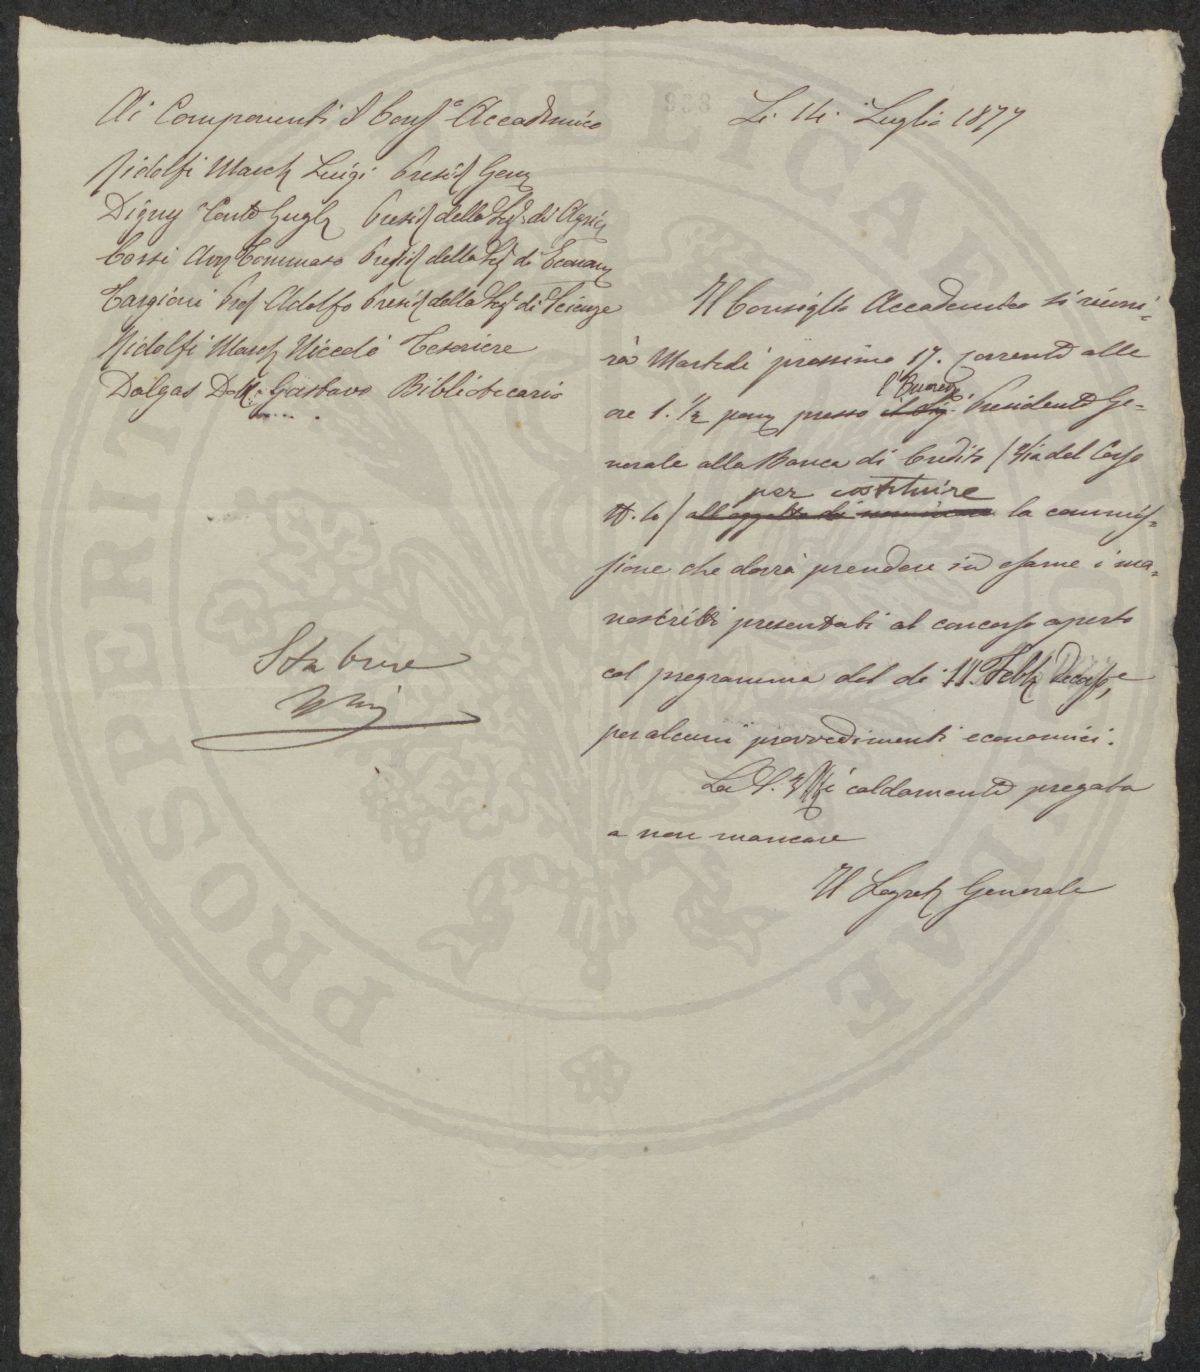 Ai Componenti il Consº Accademico
Ridolfi March Luigi Presid Gen
Digny Conte Gugl Presid della Sez di Agric
Corsi Avv Tommaso Presid della Sez di Econom
Targioni Prof Adolfo Presid della Sez di Scienze
Ridolfi March Niccolò Tesoriere
Dalgas Dott. Gustavo Bibliotecario
Sta bene
Li 14. Luglio 1877
Il Consiglio Accademico si riuni-
rà Martedì prossimo 17. corrente alle
ore 1. ½ pom presso il Sig. Presidente Ge-
nerale alla Banca di Credito (Via del Corso
per costituire
N. 6) all'oggetto di nominare la commis-
sione che dovrà prendere in esame i ma-
noscritti presentati al concorso aperto
col programma del dì 11. Febb decorso,
per alcuni provvedimenti economici.
La S. V. è caldamente pregata
a non mancare
Il Segret Generale
PROSPERITATI PUBLICAE AUGENDAE